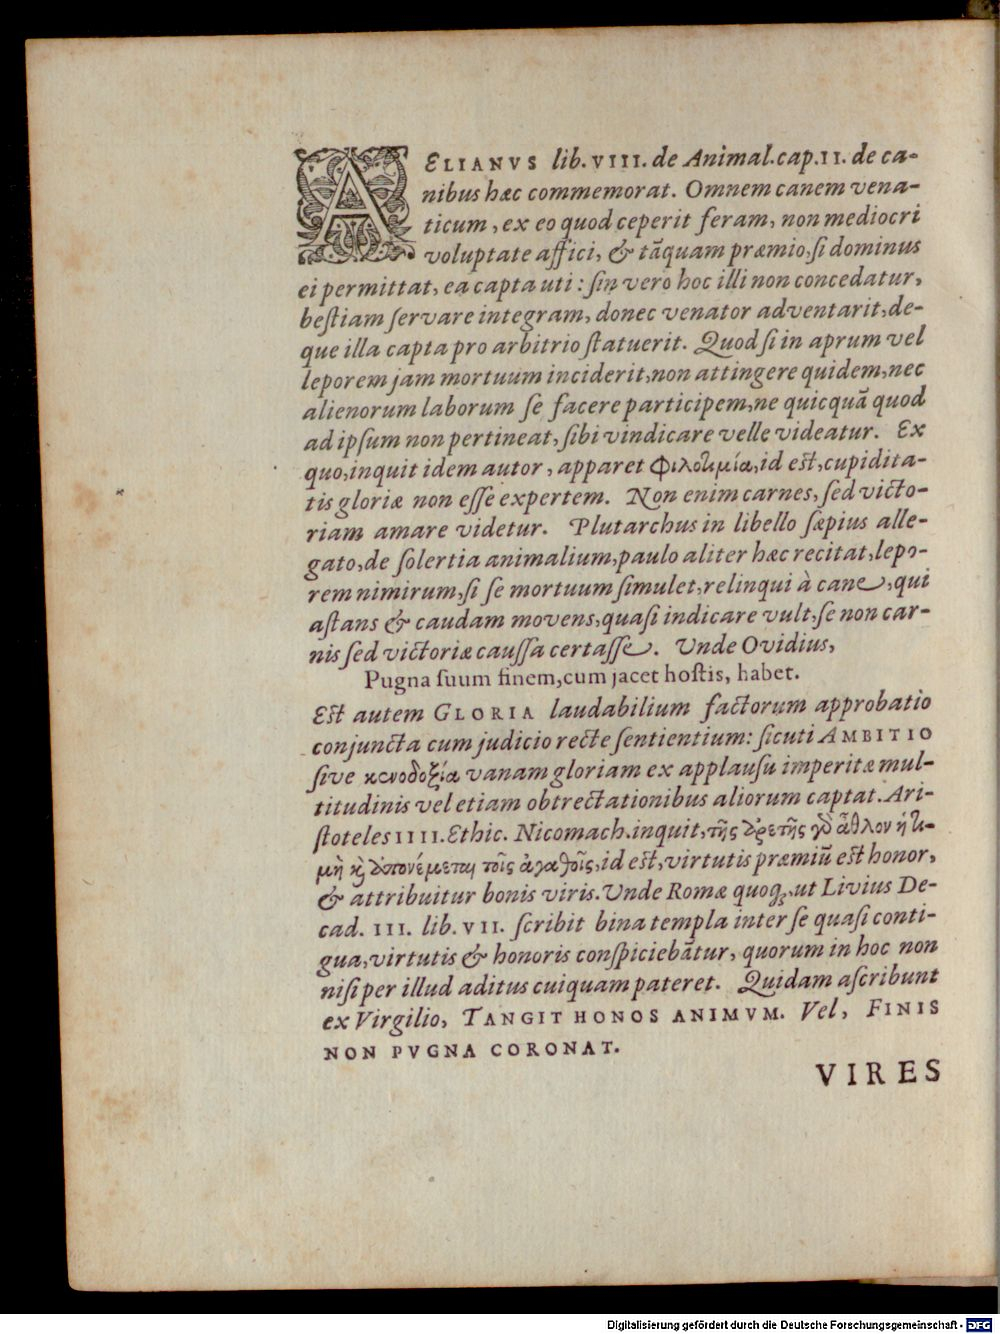 AELIANVS lib. VIII. de Animal. cap. II. de ca-
nibus hæc commemorat. Omnem canem vena-
ticum, ex eo quod ceperit feram, non mediocri
voluptate affici, & tãquam præmio, si dominus
ei permittat, ea capta uti: sin vero hoc illi non concedatur,
bestiam servare integram, donec venator adventarit, de-
que illa capta pro arbitrio statuerit. Quod si in aprum vel
leporem jam mortuum inciderit, non attingere quidem, nec
alienorum laborum se facere participem, ne quicquã quod
ad ipsum non pertineat, sibi vindicare velle videatur. Ex
quo, inquit idem autor, apparet φιλοτιμία, id est, cupidita-
tis gloriæ non esse expertem. Non enim carnes, sed victo-
riam amare videtur. Plutarchus in libello sæpius alle-
gato, de solertia animalium, paulo aliter hæc recitat, lepo-
rem nimirum, si se mortuum simulet, relinqui à cane, qui
astans & caudam movens, quasi indicare vult, se non car-
nis sed victoriæ caussa certasse. Unde Ovidius,
Pugna suum finem, cum jacet hostis, habet.
Est autem GLORIA laudabilium factorum approbatio
conjuncta cum judicio recte sentientium: sicuti AMBITIO
sive κενοδοξία vanam gloriam ex applausu imperitæ mul-
titudinis vel etiam obtrectationibus aliorum captat. Ari-
stoteles IIII. Ethic. Nicomach. inquit, τῆς ἀρετῆς γὸ ἆθλον ἡ τι-
μὴ κỳ ἀπονέμεται τοῖς ἀγαθοῖς, id est, virtutis præmiũ est honor,
& attribuitur bonis viris. Unde Romæ quoq;, ut Livius De-
cad. III. lib. VII. scribit bina templa inter se quasi conti-
gua, virtutis & honoris conspiciebãtur, quorum in hoc non
nisi per illud aditus cuiquam pateret. Quidam ascribunt
ex Virgilio, TANGIT HONOS ANIMVM. Vel, FINIS
NON PVGNA CORONAT.
VIRES
Digitalisierung gefördert durch die Deutsche Forschungsgemeinschaft - DFG